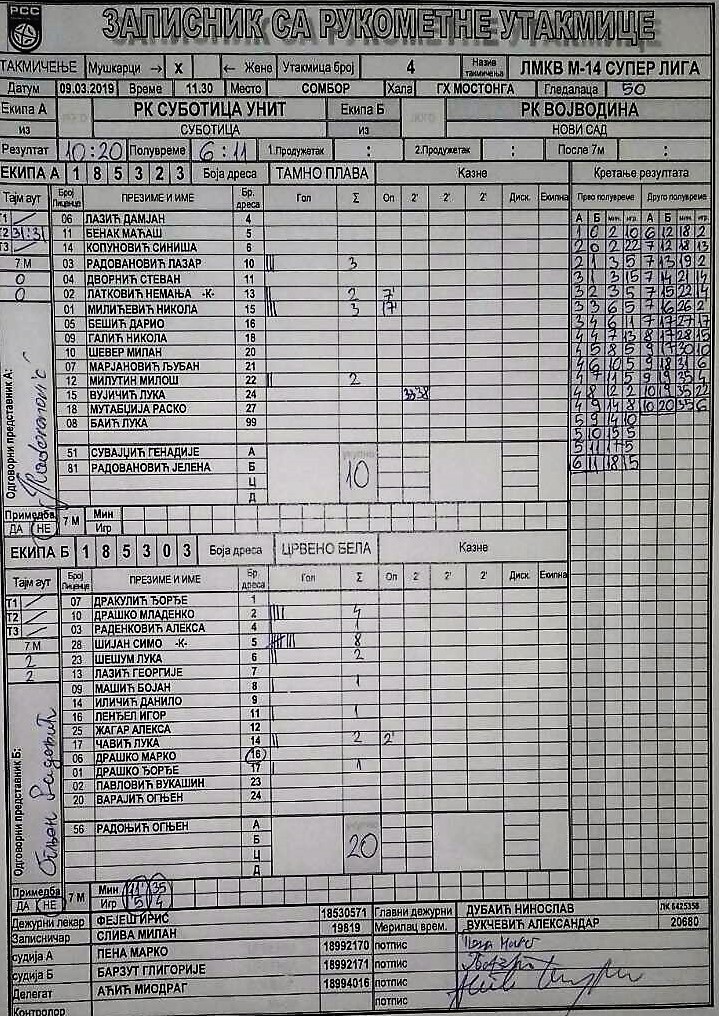 РСС
ЗАПИСНИК СА РУКОМЕТНЕ УТАКМИЦЕ
ТАКМИЧЕЊЕ Мушкарци → X ← Жене Утакмица број 4 Назив такмичења ЛМКВ М-14 СУПЕР ЛИГА
Датум 09.03.2019 Време 11.30 Место СОМБОР Хала ГХ МОСТОНГА Гледалаца 50
Екипа А РК СУБОТИЦА УНИТ Екипа Б РК ВОЈВОДИНА
из СУБОТИЦА из НОВИ САД
Резултат 10:20 Полувреме 6:11 1.Продужетак : 2.Продужетак : После 7м :
ЕКИПА А 1 8 5 3 2 3 Боја дреса ТАМНО ПЛАВА Казне Кретање резултата
Тајм аут Број Лиценце ПРЕЗИМЕ И ИМЕ Бр. дреса Гол Σ Оп 2' 2' 2' Диск. Екипна Прво полувреме Друго полувреме
А Б мин. игр. А Б мин. игр.
Т1 06 ЛАЗИЋ ДАМЈАН 4
Т2 31:31 11 БЕНАК МАЂАШ 5
Т3 14 КОПУНОВИЋ СИНИША 6
7 М 03 РАДОВАНОВИЋ ЛАЗАР 10 ||| 3
0 04 ДВОРНИЋ СТЕВАН 11
0 02 ЛАТКОВИЋ НЕМАЊА -К- 13 || 2 7'
01 МИЛИЋЕВИЋ НИКОЛА 15 ||| 3 17'
05 БЕШИЋ ДАРИО 16
09 ГАЛИЋ НИКОЛА 18
10 ШЕВЕР МИЛАН 20
07 МАРЈАНОВИЋ ЉУБАН 21
12 МИЛУТИН МИЛОШ 22 || 2
15 ВУЈИЧИЋ ЛУКА 24 33:38
18 МУТАБЏИЈА РАСКО 27
08 БАИЋ ЛУКА 99
51 СУВАЈЏИЋ ГЕНАДИЈЕ А
81 РАДОВАНОВИЋ ЈЕЛЕНА Б 10
Ц
Д
Одговорни представник А:
1 0 2 10 6 12 18 2
2 0 2 22 7 12 18 13
2 1 3 5 7 13 19 2
3 1 3 15 7 14 21 14
3 2 3 5 7 15 22 14
3 3 6 5 7 16 26 2
3 4 6 11 7 17 27 17
4 4 7 13 8 17 28 15
4 5 8 5 9 17 30 10
4 6 10 5 9 18 31 6
4 7 11 5 9 19 35 4
4 8 12 2 10 19 35 22
4 9 14 8 10 20 35 6
5 9 14 10
5 10 15 5
5 11 17 5
6 11 18 15
Примедба ДА НЕ 7 М Мин
Игр
ЕКИПА Б 1 8 5 3 0 3 Боја дреса ЦРВЕНО БЕЛА Казне
Тајм аут Број Лиценце ПРЕЗИМЕ И ИМЕ Бр. дреса Гол Σ Оп 2' 2' 2' Диск. Екипна
Т1 07 ДРАКУЛИЋ ЂОРЂЕ 1
Т2 10 ДРАШКО МЛАДЕНКО 2 |||| 4
Т3 03 РАДЕНКОВИЋ АЛЕКСА 4 | 1
7 М 28 ШИЈАН СИМО -К- 5 8
2 23 ШЕШУМ ЛУКА 6 || 2
2 13 ЛАЗИЋ ГЕОРГИЈЕ 7
09 МАШИЋ БОЈАН 8 | 1
14 ИЛИЧИЋ ДАНИЛО 9
16 ЛЕНЂЕЛ ИГОР 11 | 1
25 ЖАГАР АЛЕКСА 12
17 ЧАВИЋ ЛУКА 14 || 2 2'
06 ДРАШКО МАРКО 16
01 ДРАШКО ЂОРЂЕ 17 | 1
02 ПАВЛОВИЋ ВУКАШИН 23
20 ВАРАЈИЋ ОГЊЕН 24
56 РАДОЊИЋ ОГЊЕН А
Б 20
Ц
Д
Одговорни представник Б:
Огњен Радоњић
Примедба ДА НЕ 7 М Мин 11' 35
Игр 5 4
Дежурни лекар ФЕЈЕШ ИРИС 18530571 Главни дежурни ДУБАИЋ НИНОСЛАВ ЛК 6425358
Записничар СЛИВА МИЛАН 19819 Мерилац врем. ВУКЧЕВИЋ АЛЕКСАНДАР 20680
судија А ПЕНА МАРКО 18992170 потпис
судија Б БАРЗУТ ГЛИГОРИЈЕ 18992171 потпис
Делегат АЋИЋ МИОДРАГ 18994016 потпис
Контролор потпис